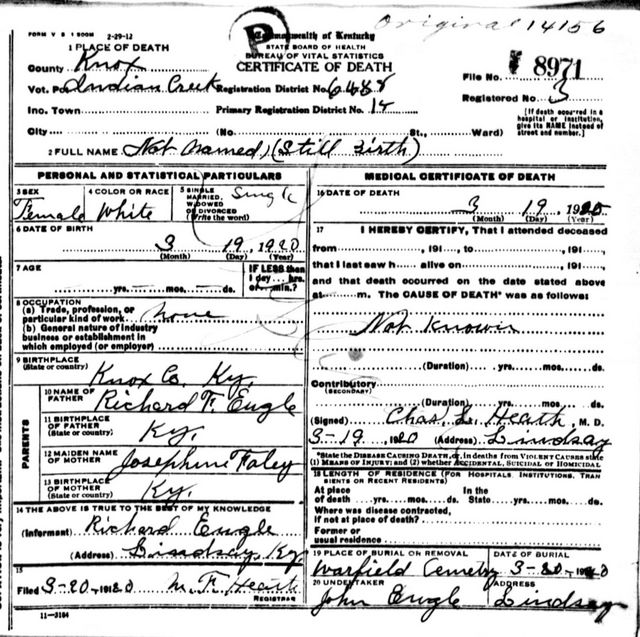 Original 14156
FORM V S 1 500M 2-29-12
P
Commonwealth of Kentucky
STATE BOARD OF HEALTH
BUREAU OF VITAL STATISTICS
CERTIFICATE OF DEATH
1 PLACE OF DEATH
County Knox
Vot. Indian Creek Registration District No.
Inc. Town Primary Registration District No.
City (No St., Ward)
File No. 8971
Registered No. 3
[If death occurred in a hospital or institution, give its NAME instead of street and number.]
2 FULL NAME Not Named, (Still Birth)
PERSONAL AND STATISTICAL PARTICULARS
3 SEX Female
4 COLOR OR RACE White
5 SINGLE MARRIED, WIDOWED OR DIVORCED (Write the word) Single
6 DATE OF BIRTH
3 19, 1920
(Month) (Day) (Year)
7 AGE
yrs. mos. ds.
IF LESS than 1 day hrs. or min.?
8 OCCUPATION
(a) Trade, profession, or particular kind of work none
(b) General nature of industry business or establishment in which employed (or employer)
9 BIRTHPLACE
(State or country) Knox Co. Ky.
PARENTS
10 NAME OF FATHER Richard F. Eugle
11 BIRTHPLACE OF FATHER (State or country) Ky.
12 MAIDEN NAME OF MOTHER Josephine Faley
13 BIRTHPLACE OF MOTHER (State or country) Ky.
14 THE ABOVE IS TRUE TO THE BEST OF MY KNOWLEDGE
(Informant) Richard Eugle
(Address) Lindsay, Ky
15
Filed 3-20-1920 M. F. Heath
REGISTRAR
11-3184
MEDICAL CERTIFICATE OF DEATH
16 DATE OF DEATH
3 19 1920
(Month) (Day) (Year)
17 I HEREBY CERTIFY, That I attended deceased
from , 191 , to , 191 ,
that I last saw h alive on , 191 ,
and that death occurred on the date stated above
at m. The CAUSE OF DEATH* was as follows:
Not Known
(Duration) yrs. mos. ds.
Contributory
(SECONDARY)
(Duration) yrs. mos. ds.
(Signed) Chas. L. Heath, M. D.
3-19, 1920 (Address) Lindsay
*State the DISEASE CAUSING DEATH, or, in deaths from VIOLENT CAUSES state
(1) MEANS OF INJURY; and (2) whether ACCIDENTAL, SUICIDAL OR HOMICIDAL
18 LENGTH OF RESIDENCE (FOR HOSPITALS, INSTITUTIONS, TRANSIENTS OR RECENT RESIDENTS)
At place of death yrs. mos. ds. In the State yrs. mos. ds.
Where was disease contracted,
If not at place of death?
Former or usual residence
19 PLACE OF BURIAL OR REMOVAL
Warfield Cemetery
DATE OF BURIAL
3-20
20 UNDERTAKER
John Eugle
ADDRESS
Lindsay